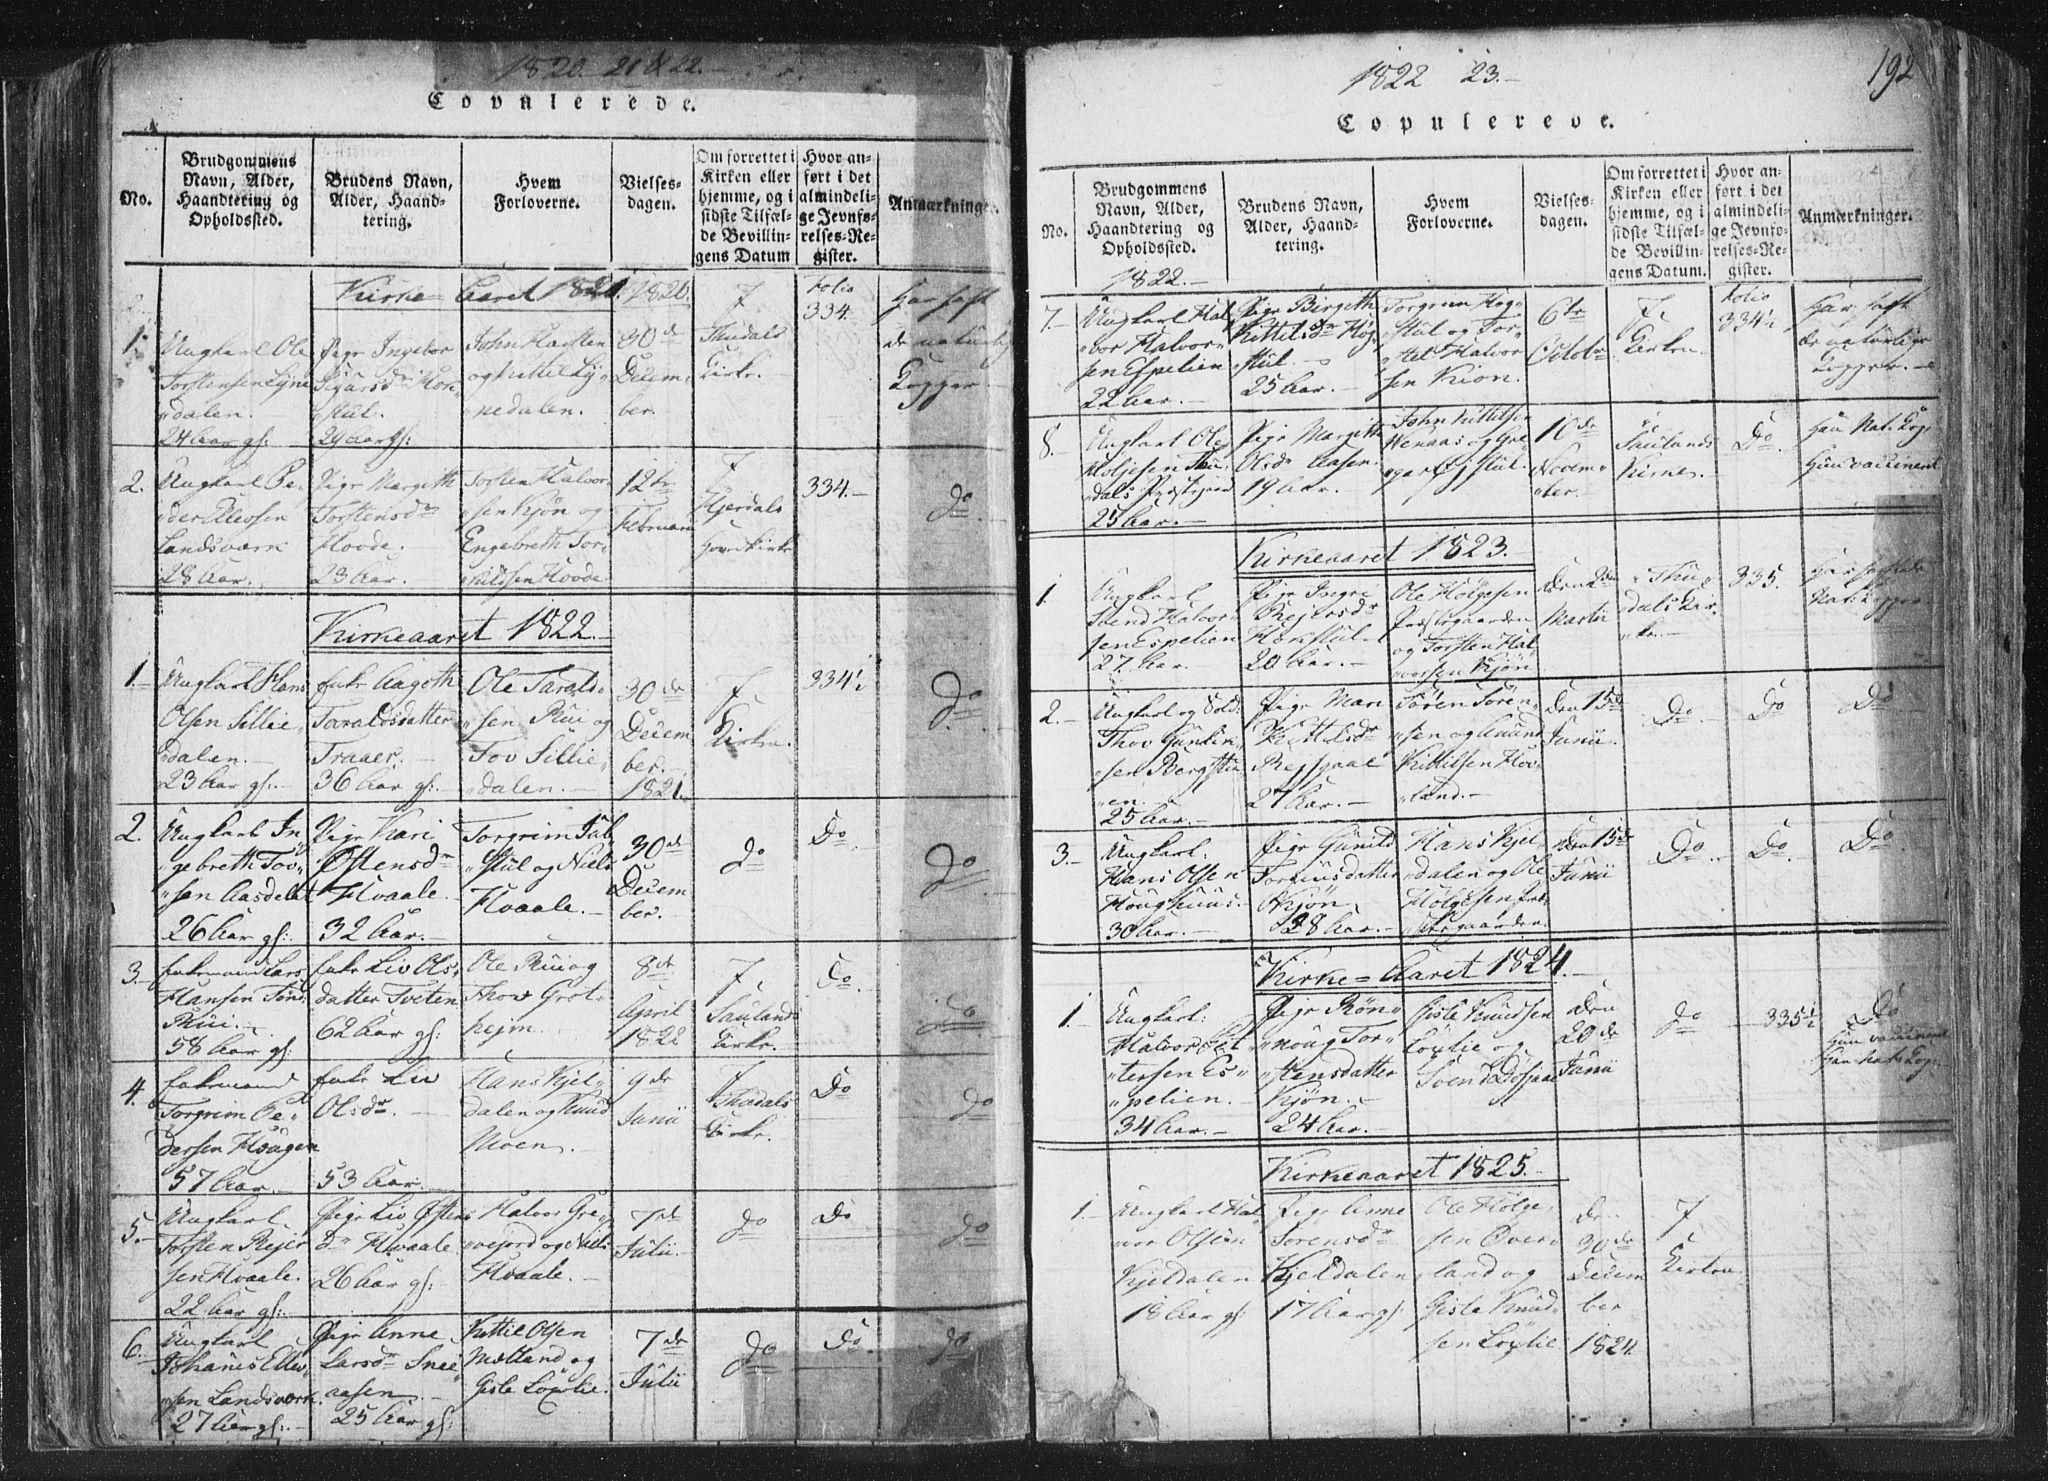 1820. 21 & 22.
Copulerede.
No.
Brudgommens
Navn, Alder,
Haandtering og
Opholdssted.
Brudens Navn,
Alder, Haand-
tering.
Hvem
Forloverne.
Vielses-
dagen.
Om forrettet i
Kirken eller
hjemme, og i
sidste Tilfæl-
de Bevillin-
gens Datum
Hvor an-
ført i det
almindeli-
ge Jevnfø-
relses-Re-
gister.
Anmærkninger.
Kirke-Aaret 1821.
1.
Ungkarl Ole
Torstensen Lyne
dalen.
24 Aar gl:
Pige Ingebor
29 Aar gl:
John
og Kittil Ly
nedalen.
1820.
30 de
Decem
ber.
I
Thudals
Kirke.
Folio
334.
Har haft
de naturlig
Kopper.
2.
Ungkarl Pe
der Ellevsen
Landsværk
28 Aar.
Pige Margith
Torstensdr
Hovde.
23 Aar.
Torsten Halvor
sen Kjøn og
Engebreth Tor
kildsen Hovde
12te
Februari
I
Hjerdals
Hovedkirke
334.
Do
Kirkeaaret 1822.
1.
Ungkarl Hans
Olsen Sillie
dalen.
23 Aar gl:
Enke Aagoth
Taraldsdatter
Traaer.
36 Aar gl:
Ole Tarals
sen Rui og
Tov Sillie
dalen.
30 de
Decem
ber.
1821.
I
Kirken.
334½
Do
2.
Ungkarl In
gebreth Tov
sen Aasdalen
26 Aar gl:
Pige Kari
Østensdr
Hvaale.
32 Aar.
Torgrim Jul
stul og Niels
Hvaale.
30 de
Decem
ber.
do
Do
Do
3.
Enkemand Lars
Hansen
Rui.
58 Aar gl:
Enke Liv Ols
datter Tveten
62 Aar gl:
Ole Rui og
Thov Grot
hejm.
8de
April
1822
I
Saulands
Kirke.
Do
Do
4.
Enkemand
Torgrim Pe
dersen Haugen
57 Aar.
Enke Liv
Olsdr.
53 Aar.
Hans Kjel
dalen og Knud
Moen.
9de
Junii
I
Thudals
Kirke.
Do
do
5.
Ungkarl
Torsten Rejer
sen Hvaale.
22 Aar gl:
Pige Liv Østens
Dr Hvaale
26 Aar gl:
Halvor Gre
vejord og Niels
Hvaale.
7de
Julii.
do
Do
do
6.
Ungkarl
Johannes Ellev
sen Landsværk.
27 Aar gl:
Pige Anne
Larsdr Snei
aasen
25 Aar gl:
Kittil Olsen
Mætland og
Gisle Løvlie.
7de
Julii
do
Do
do
192
1822 23.
Copulerede.
No.
Brudgommens
Navn, Alder,
Haandtering og
Opholdssted.
Brudens Navn,
Alder, Haand-
tering.
Hvem
Forloverne.
Vielses-
dagen.
Om forrettet i
Kirken eller
hjemme, og i
sidste Tilfæl-
de Bevillin-
gens Datum.
Hvor an-
ført i det
almindeli-
ge Jevnfø-
relses-Re-
gister.
Anmærkninger.
1822.
7.
Ungkarl Hal
vor Halvor
sen Espelien
22 Aar.
Pige Birgeth
Kittilsdr Høg
stul.
25 Aar.
Torgrim Høg
stul og Tor
Halvor
sen Kion.
6te
Octobr
I
Kirken.
Folio
334½
Har haft
de naturlige
Kopper.
8.
Ungkarl Ole
Holjesen Thu
dals Præstegaard
25 Aar.
Pige Margith
Olsdr Aasen.
19 Aar.
John Kittilsen
Venaas og Gre
gar stul.
10de
Novem
ber.
I
Saulands
Kirke.
Do
Han Nat. Kop.
Hun vaccineret
Kirkeaaret 1823.
1.
Ungkarl
Svend Halvor
sen Espelien
27. Aar.
Pige Ingre
Rejersdr
20 Aar.
Ole Holgesen
Præstegaarden
og Torsten Hal
vorsen Kjøn
Den 2den
Martii
Thu
dals Kir
ke.
335.
Har hafte
Nat: Kopper
2.
Ungkarl og Sold:
Thov Gunlik
sen Bergstui
en.
25 Aar.
Pige Mari
Kittelsdr
27 Aar.
Søren Søren
sen og Amund
Kittilsen Hov
land.
Den 15de
Junii.
Do
Do
Do
3.
Ungkarl:
Hans Olsen
Houghuus.
30 Aar.
Pige Gunild
Torgrimsdatter
Kjøn
28 Aar.
Hans Kjel
dalen og Ole
Holgesen Præ
stegaarden
Den 15de
Junii
Do
Do
Do
Kirke-Aaret 1824.
1.
Ungkarl:
Halvor Pet
tersen Es
pelien.
34 Aar.
Pige Røn
noug Tor
stensdatter
Kjøn.
24 Aar.
Gisle Knudsen
Løvlie og
Svend
Den
20 de
Junii
do
335½
Do
Hun vaccineret
Han nat. Kop.
Kirkeaaret 1825.
1
Ungkarl Hal
vor Olsen
Kjeldalen
18 Aar gl:
Pige Anne
Sørensdr
Kjeldalen
17 Aar gl:
Ole Holge
sen Øver
land og
Gisle Knud
sen Løvlie
den
30 de
Decem
ber
1824.
I
Kirken